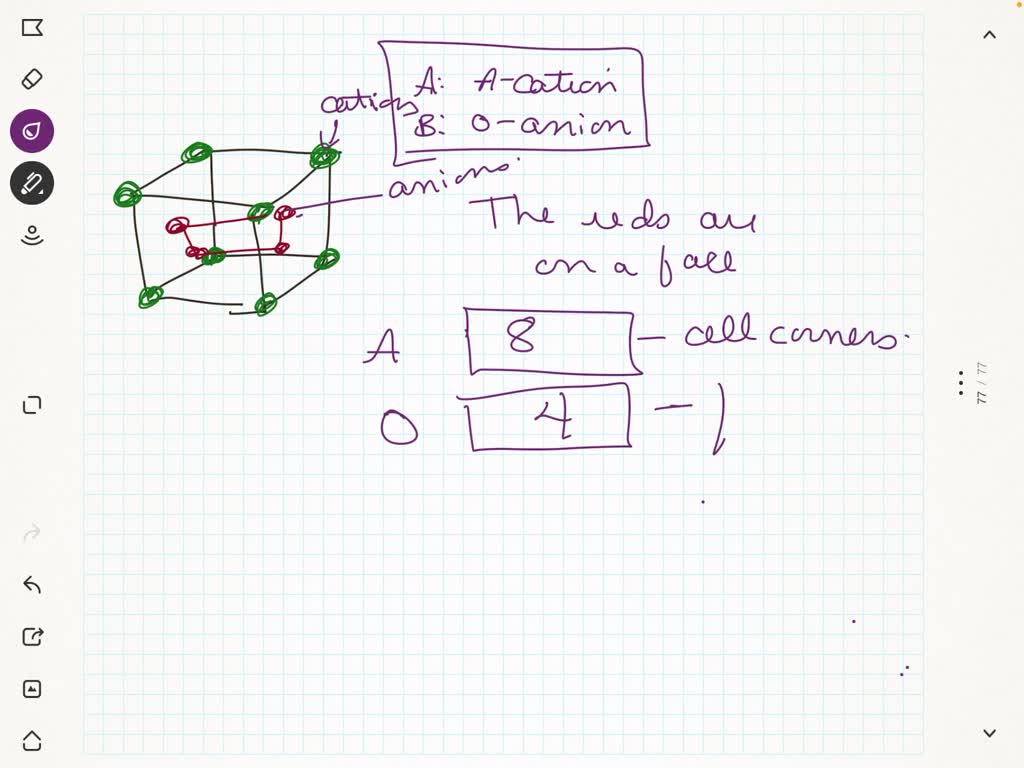 A: A-cation
cations
B: O-anion
anions.
The reds are
on a face
A 8 - cell corners.
O 4 - )
77 / 77